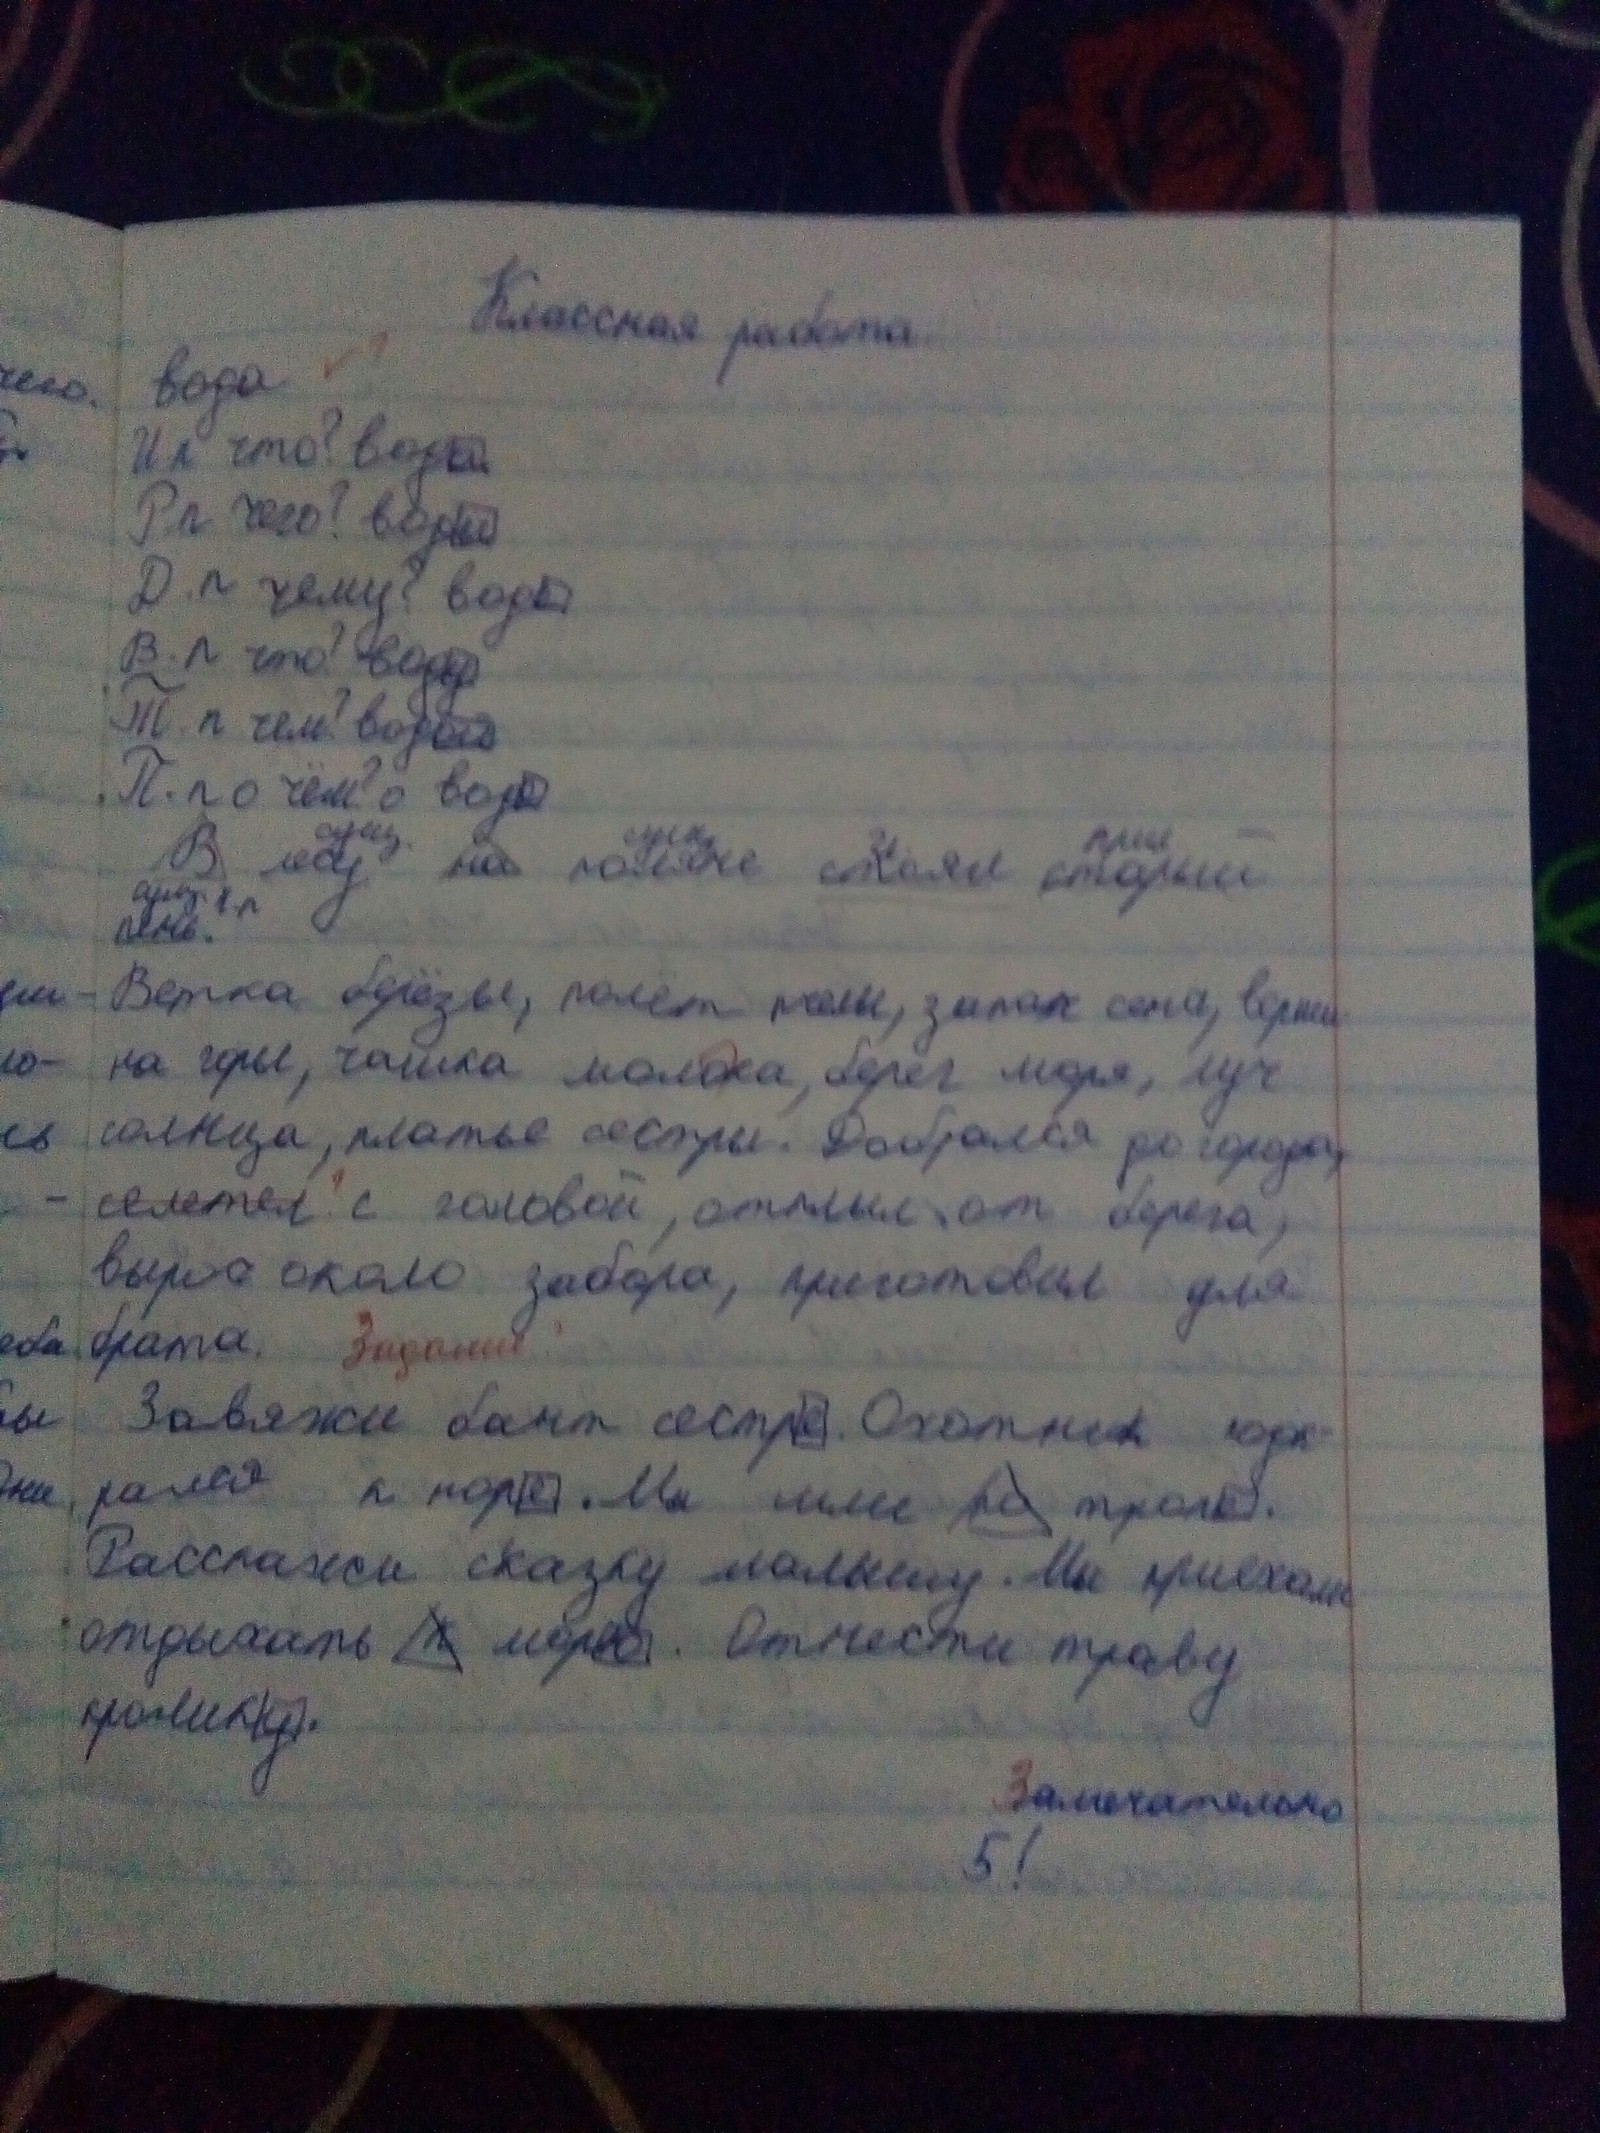 Классная работа
чего. вода
И п что? вода
Р п чего? воды
Д. п чему? воде
В. п что? воду
Т. п чем? водой
П. п о чём? о воде
сущ. сущ. гл прил
В лесу на поляне стоял старый
сущ. И п
пень.
Ветка берёзы, полёт пчелы, запах сена, верши
но- на горы, чашка молока, берег моря, луч
сь солнца, платье сестры. Добрался до города,
- слетел с головой, отплыл от берега,
вырос около забора, приготовил для
еба брата. Задание
ы Завяжи бант сестре. Охотник подк
рался к норе. Мы шли по тропе.
Расскажи сказку малышу. Мы приехали
отдыхать к морю. Отнести траву
кролику.
Замечательно
5!